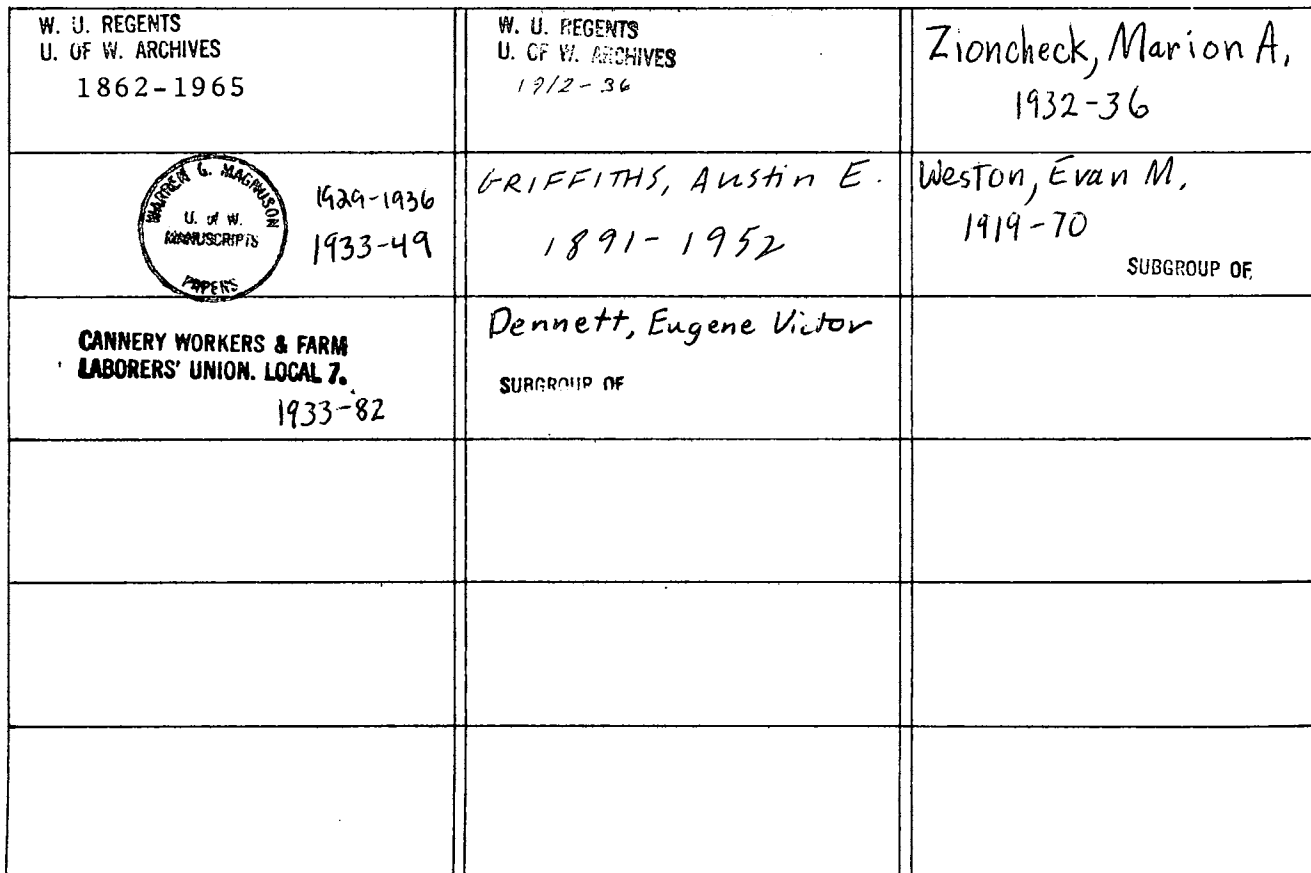 W. U. REGENTS
U. OF W. ARCHIVES
1862-1965
W. U. REGENTS
U. OF W. ARCHIVES
1912-36
Zioncheck, Marion A.
1932-36
WARREN G. MAGNUSON
U. of W.
MANUSCRIPTS
PAPERS
1929-1936
1933-49
GRIFFITHS, Austin E.
1891-1952
Weston, Evan M.
1919-70
SUBGROUP OF
CANNERY WORKERS & FARM
LABORERS' UNION. LOCAL 7.
1933-82
Dennett, Eugene Victor
SUBGROUP OF